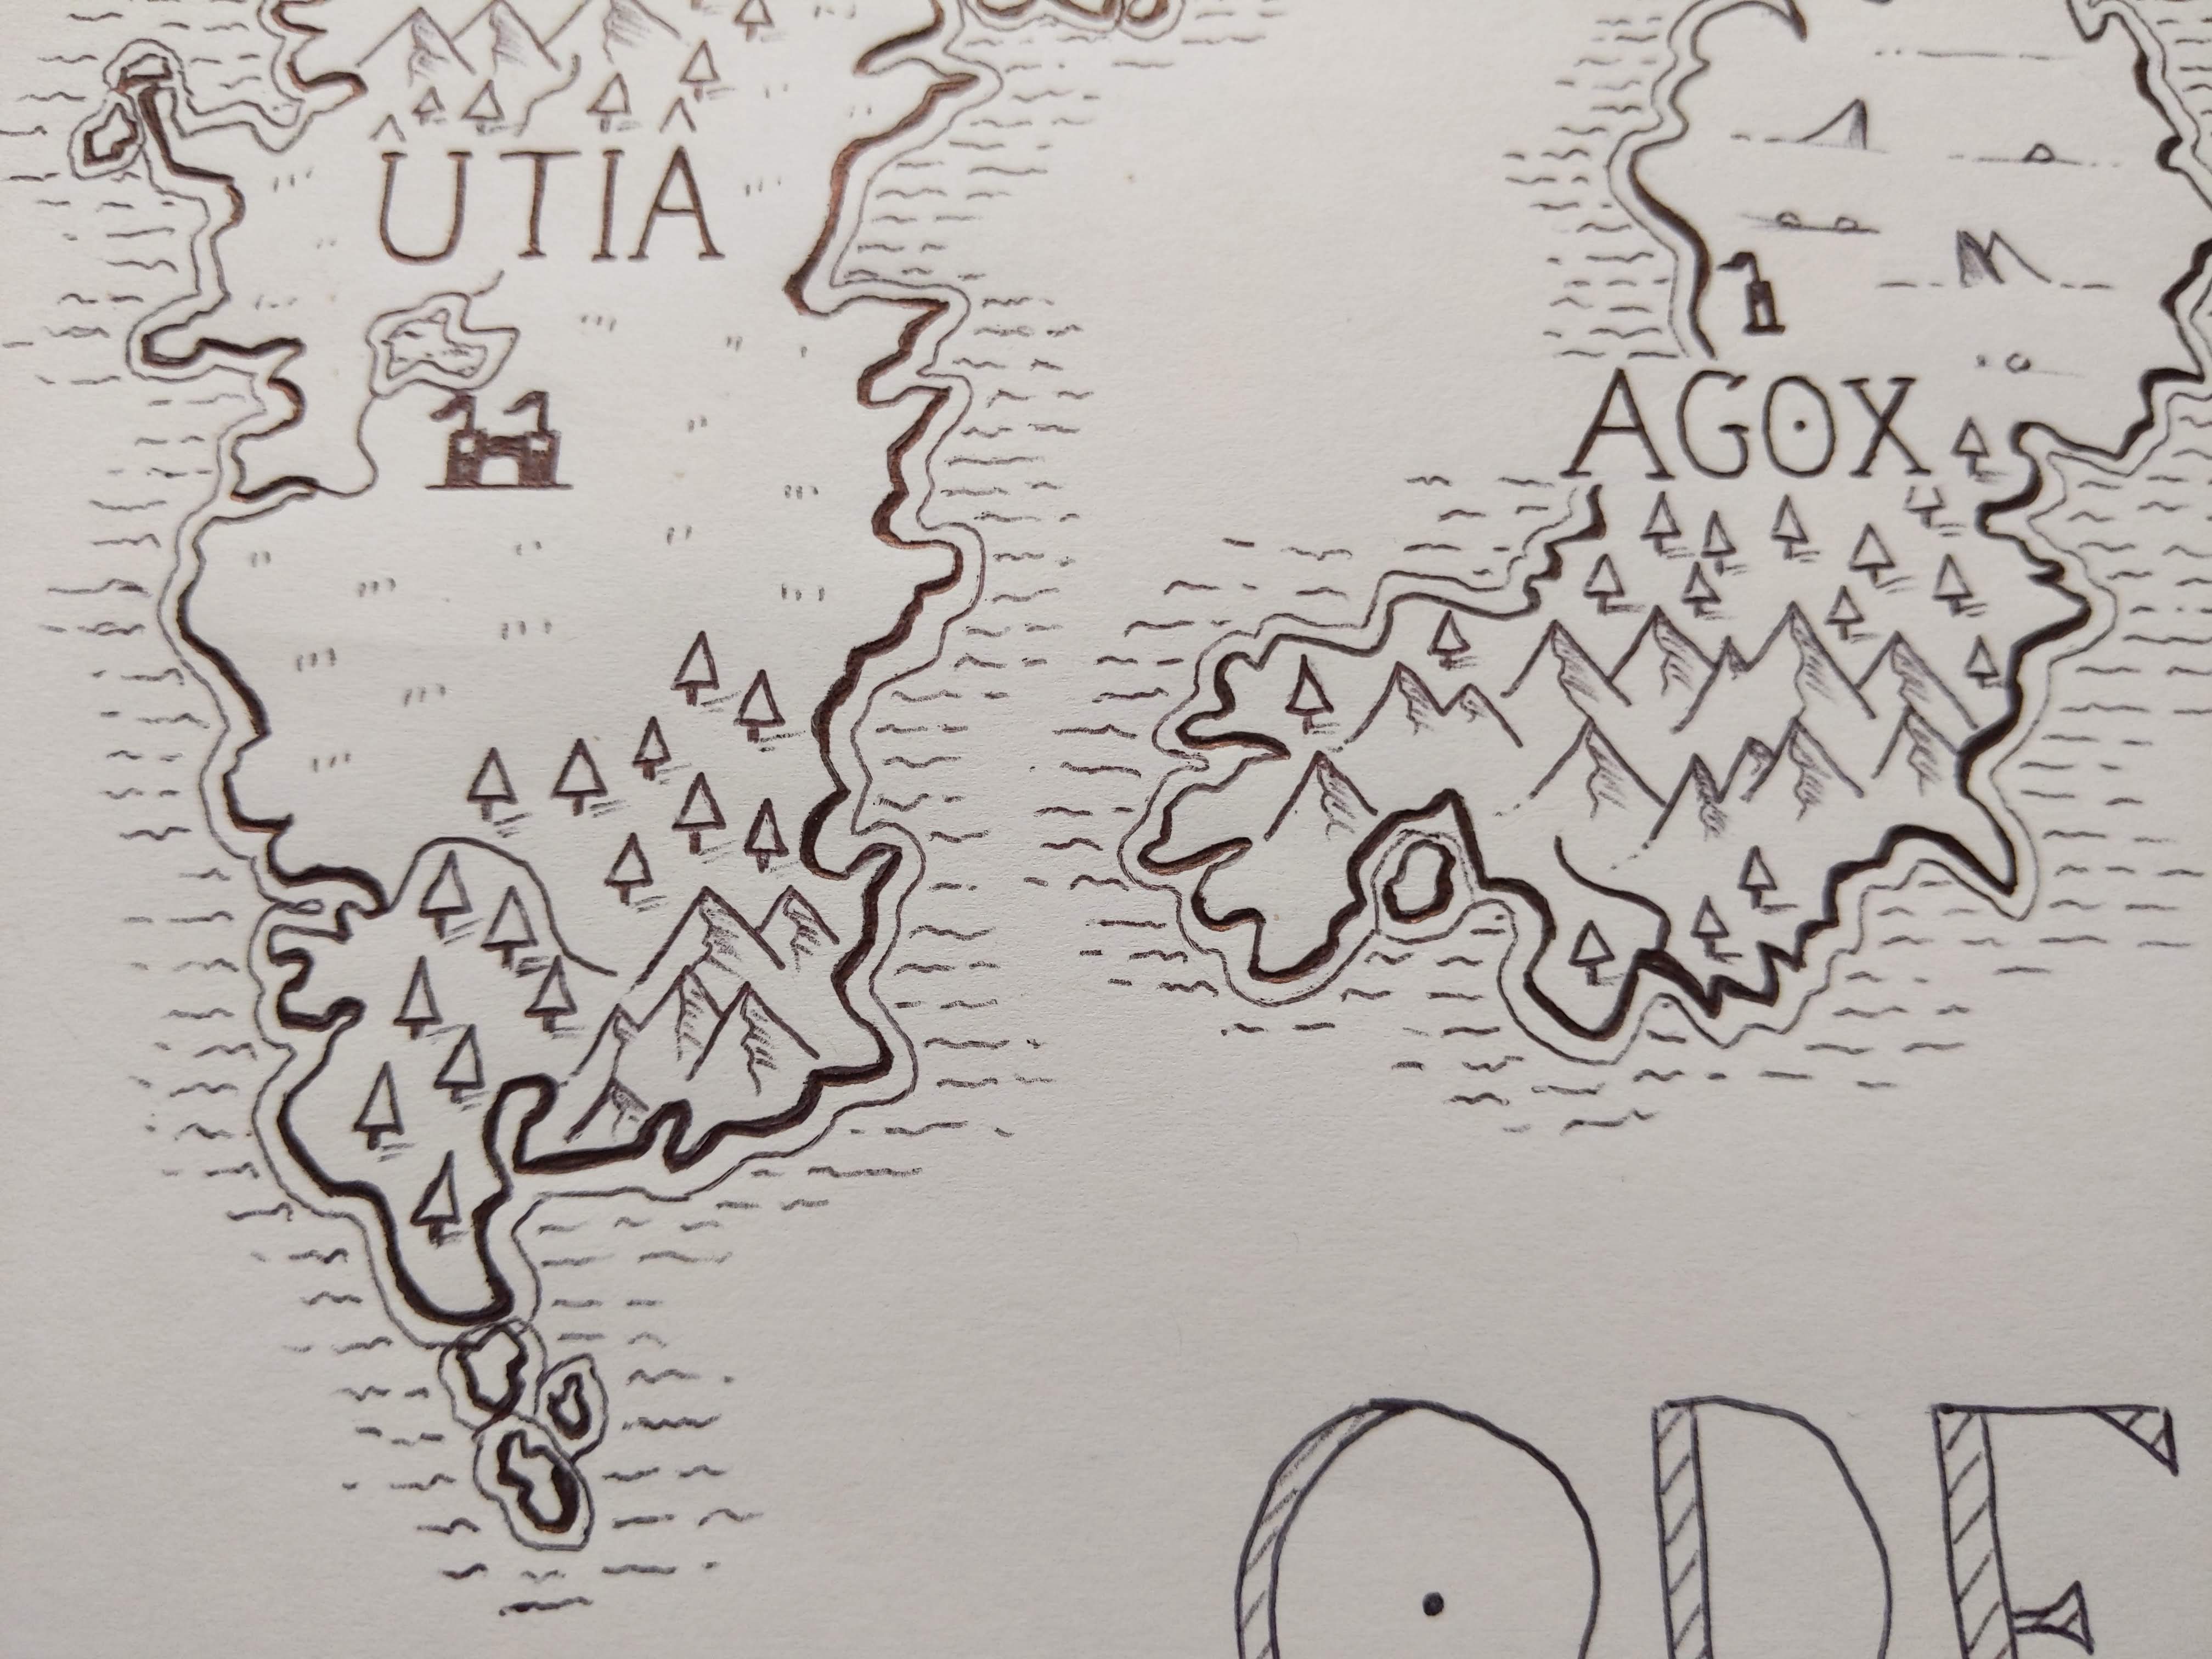 ÛTIÂ
AGOX
ODE